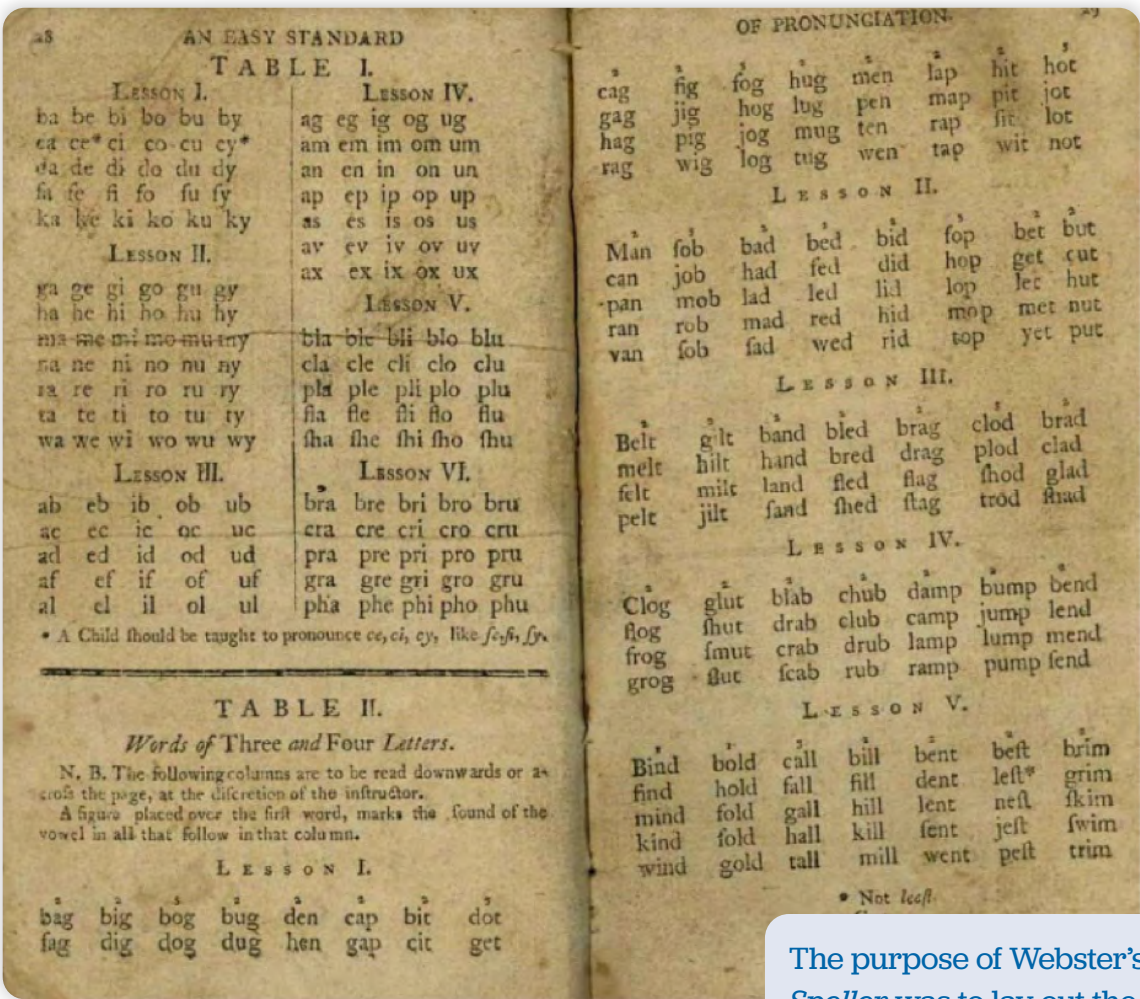 28 AN EASY STANDARD
TABLE I.
LESSON I.
ba be bi bo bu by
ca ce* ci co cu cy*
da de di do du dy
fa fe fi fo fu fy
ka ke ki ko ku ky
LESSON II.
ga ge gi go gu gy
ha he hi ho hu hy
ma me mi mo mu my
na ne ni no nu ny
ra re ri ro ru ry
ta te ti to tu ty
wa we wi wo wu wy
LESSON III.
ab eb ib ob ub
ac ec ic oc uc
ad ed id od ud
af ef if of uf
al el il ol ul
LESSON IV.
ag eg ig og ug
am em im om um
an en in on un
ap ep ip op up
as es is os us
av ev iv ov uv
ax ex ix ox ux
LESSON V.
bla ble bli blo blu
cla cle cli clo clu
pla ple pli plo plu
fla fle fli flo flu
ſha ſhe ſhi ſho ſhu
LESSON VI.
bra bre bri bro bru
cra cre cri cro cru
pra pre pri pro pru
gra gre gri gro gru
pha phe phi pho phu
* A Child ſhould be taught to pronounce ce, ci, cy, like ſe, ſi, ſy.
TABLE II.
Words of Three and Four Letters.
N. B. The following columns are to be read downwards or a-
croſs the page, at the diſcretion of the inſtructor.
A figure placed over the firſt word, marks the ſound of the
vowel in all that follow in that column.
LESSON I.
bag big bog bug den cap bit dot
fag dig dog dug hen gap cit get
OF PRONUNCIATION. 29
cag fig fog hug men lap hit hot
gag jig hog lug pen map pit jot
hag pig jog mug ten rap ſit lot
rag wig log tug wen tap wit not
LESSON II.
Man fob bad bed bid fop bet but
can job had fed did hop get cut
pan mob lad led lid lop let hut
ran rob mad red hid mop met nut
van ſob ſad wed rid top yet put
LESSON III.
Belt gilt band bled brag clod brad
melt hilt hand bred drag plod clad
felt milt land fled flag ſhod glad
pelt jilt ſand ſhed ſtag trod ſhad
LESSON IV.
Clog glut blab chub damp bump bend
flog ſhut drab club camp jump lend
frog ſmut crab drub lamp lump mend
grog ſlut ſcab rub ramp pump ſend
LESSON V.
Bind bold call bill bent beſt brim
find hold fall fill dent leſt* grim
mind fold gall hill lent neſt ſkim
kind ſold hall kill ſent jeſt ſwim
wind gold tall mill went peſt trim
* Not leeſt.
The purpose of Webster's
Speller was to lay out the